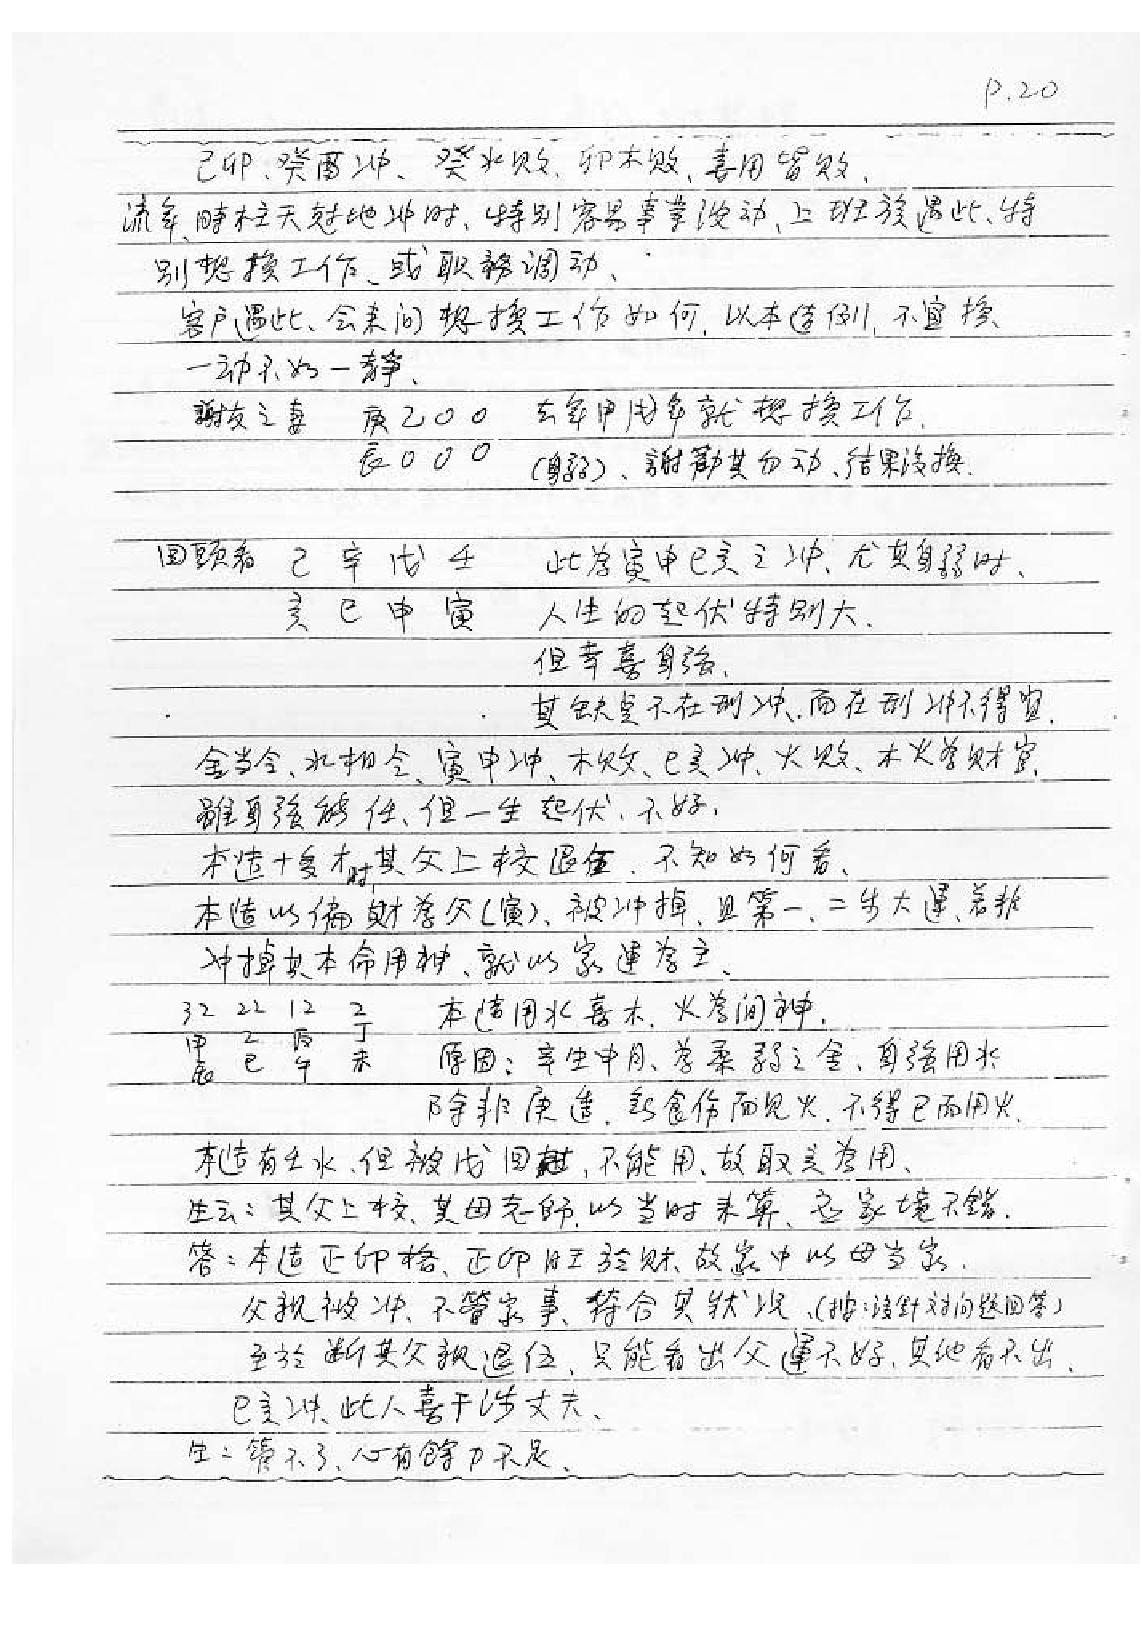 P.20
己卯、癸酉冲、癸水败、卯木败、喜用皆败、
流年、時柱天尅地冲时、特别容易事業波动、上班族遇此、特
别想換工作、或职務调动、
客户遇此、会来问想換工作如何、以本造例、不宜換、
一动不如一静、
謝友之妻 庚乙00 去年甲戌年就想換工作、
辰000 (身弱)、謝勸其勿动、结果没換、
回頭看 己辛戊壬 此為寅申巳亥之冲、尤其身弱时、
亥巳申寅 人生的起伏特别大、
但幸喜身強、
其缺点不在刑冲、而在刑冲不得宜、
金当令、水相令、寅申冲、木败、巳亥冲、火败、木火為财官、
雖身強能任、但一生起伏、不好、
本造十多才时,其父上校退伍、不知如何看、
本造以偏财為父(寅)、被冲掉、且第一、二步大運、若非
冲掉其本命用神、就以家運為主、
32 22 12 2 本造用水喜木、火為闲神、
甲乙丙丁
辰巳午未 原因:辛生申月、為柔弱之金、身強用水
除非庚造、 食伤而見火、不得已而用火、
本造有壬水、但被戊回尅、不能用、故取亥為用、
生云:其父上校、其母老師、以当时来算、 家境不錯、
答:本造正印格、正印旺於财、故家中以母当家、
父親被冲、不管家事、符合其狀况、(按:没針对问题回答)
至於断其父親退伍、只能看出父運不好、其他看不出、
巳亥冲、此人喜干涉丈夫、
生:管不了、心有餘力不足、